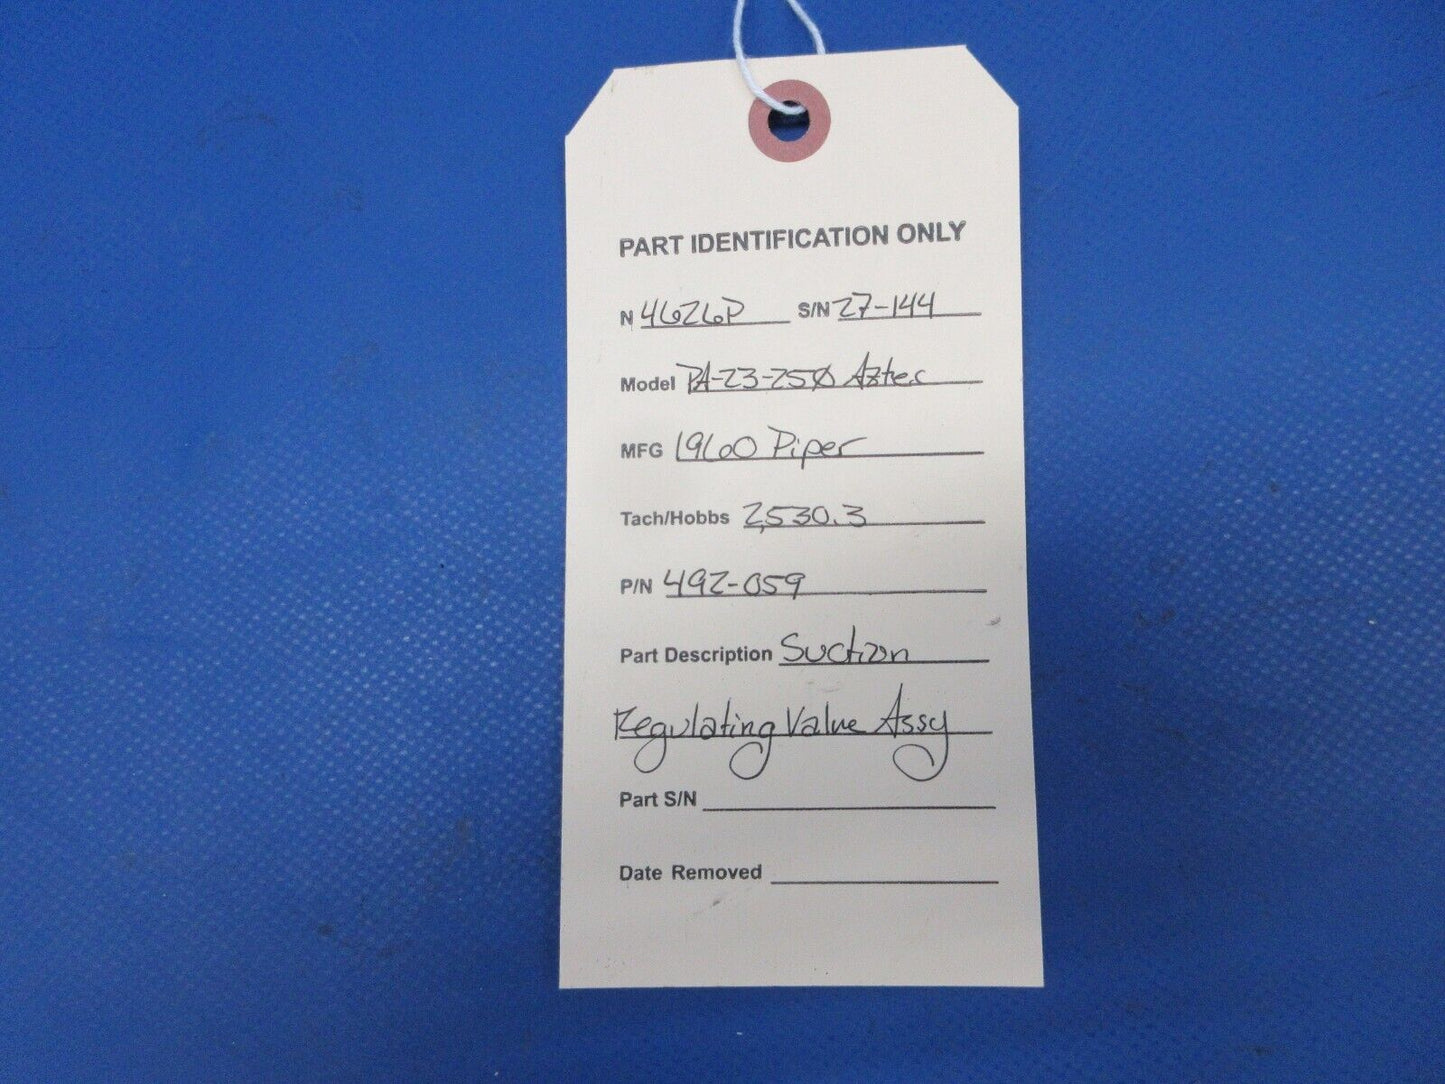 PART IDENTIFICATION ONLY
N 4626P S/N 27-144
Model PA-23-250 Aztec
MFG 1960 Piper
Tach/Hobbs 2,530.3
P/N 492-059
Part Description Suction
Regulating Valve Assy
Part S/N
Date Removed